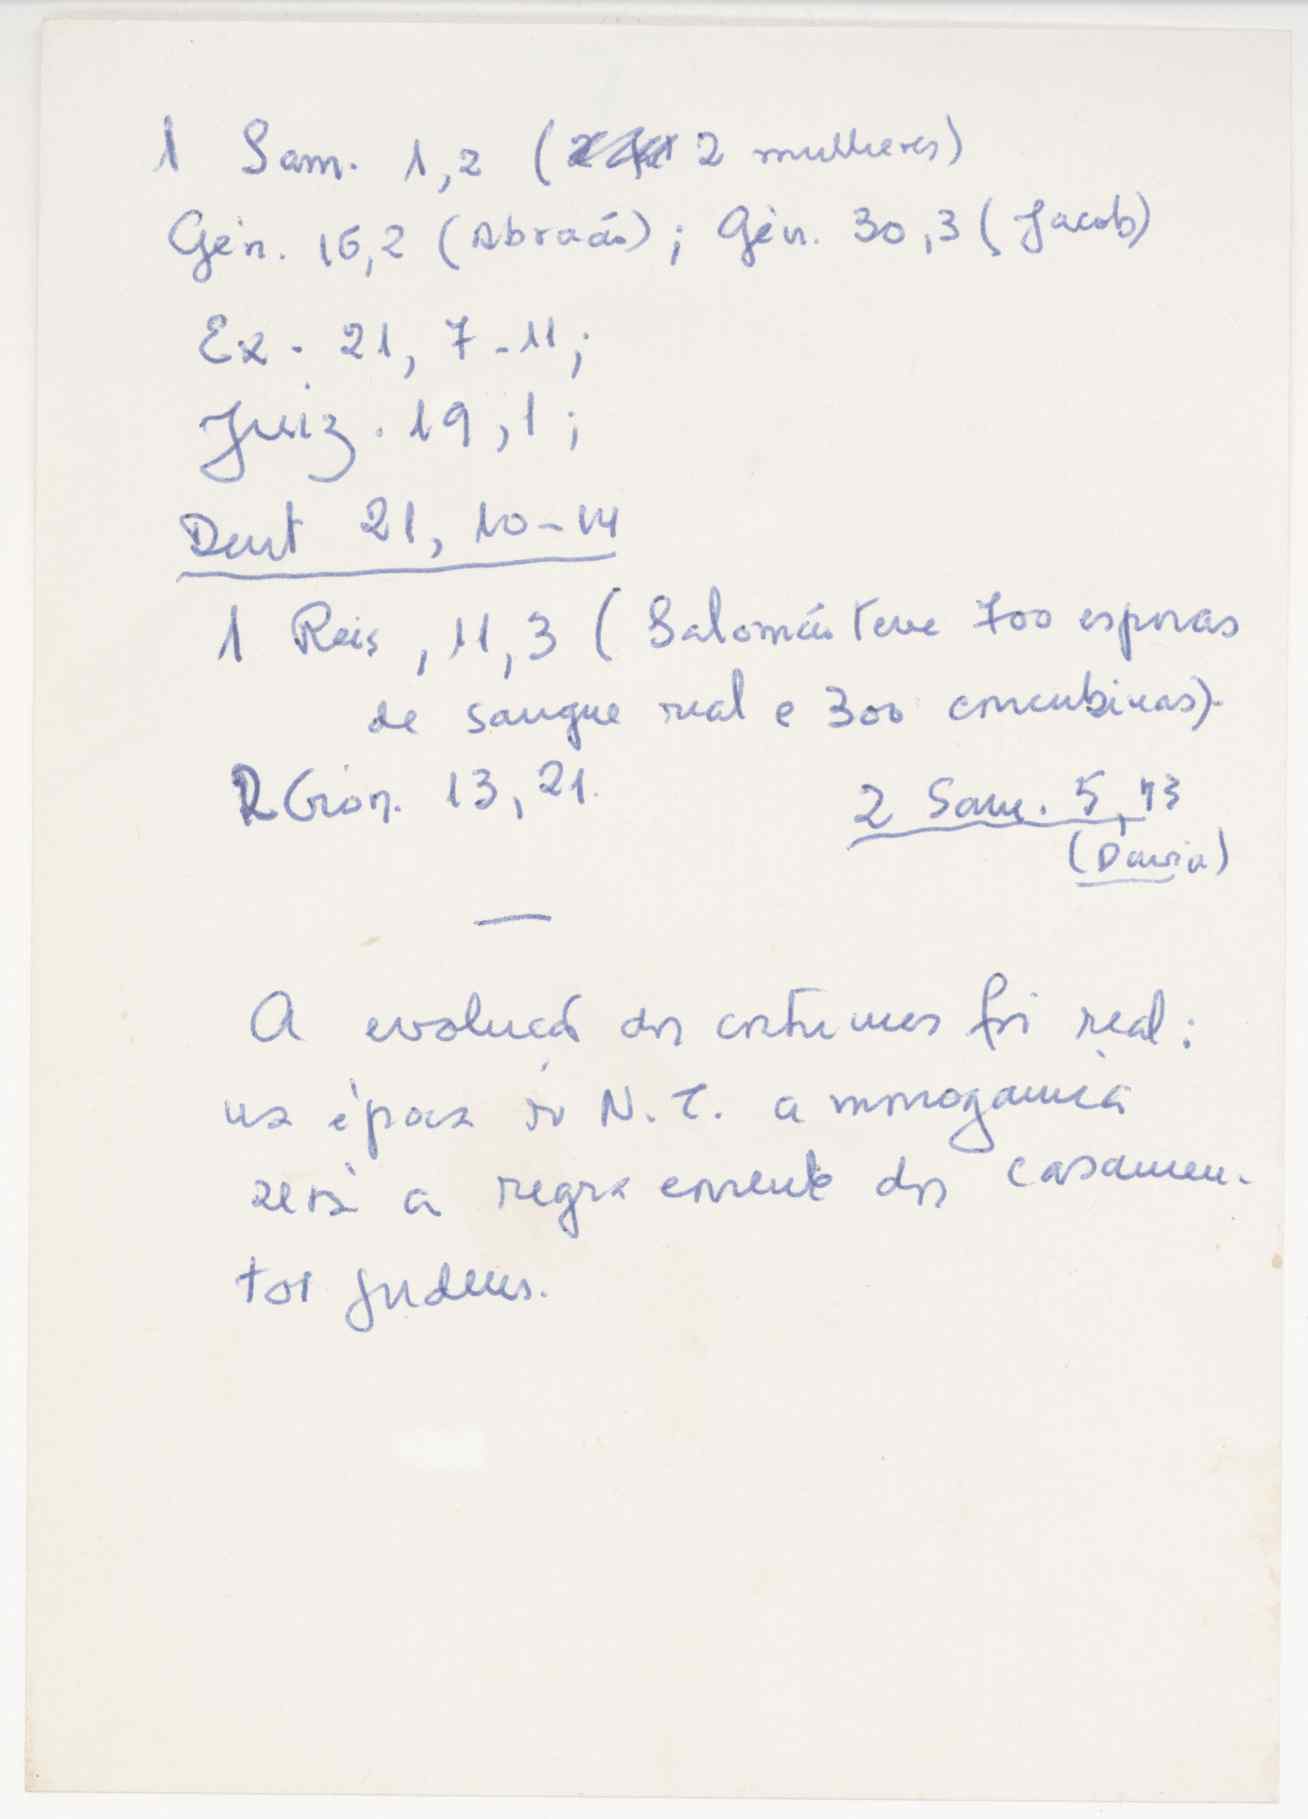 1 Sam. 1,2 (2 mulheres)
Gén. 16,2 (Abraão); Gén. 30,3 (Jacob)
Ex. 21, 7-11;
Juiz. 19,1;
Deut 21, 10-14
1 Reis, 11,3 (Salomão teve 700 esposas
de sangue real e 300 concubinas).
2 Crón. 13,21. 2 Sam. 5,13
(David)
A evolução dos costumes foi real:
na época do N.T. a monogamia
será a regra corrente dos casamen-
tos judeus.